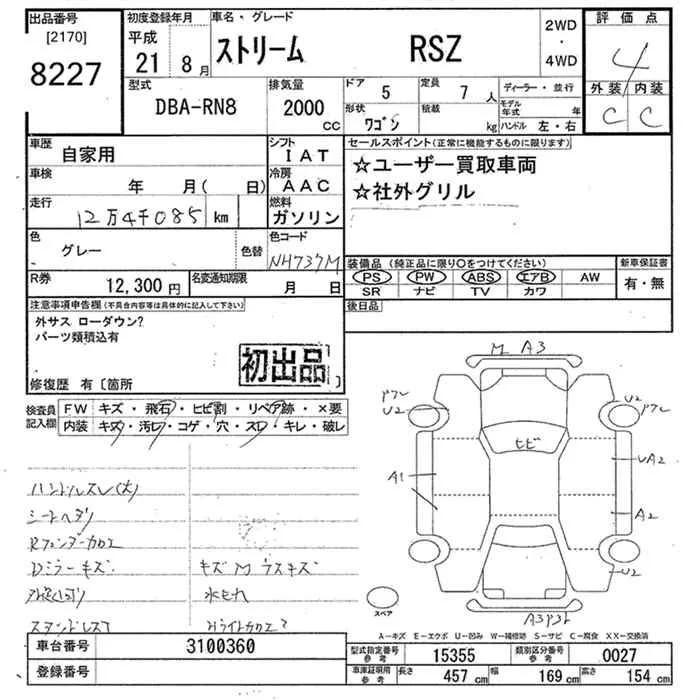 出品番号
[2170]
8227
初度登録年月
平成
21年 8月
車名・グレード
ストリーム RSZ
2WD
・
4WD
評価点
4
外装 内装
C C
型式
DBA-RN8
排気量
2000
CC
ドア 5
定員 7 人
形状
ワゴン
積載
kg
ディーラー・並行
モデル年式 年
ハンドル 左・右
車歴
自家用
シフト
IAT
車検
年 月( 日)
冷房
AAC
走行
12万4千085 km
燃料
ガソリン
色
グレー
色替
色コード
NH737M
R券
12,300円
名変通知期限
月 日
セールスポイント(正常に機能するものに限ります)
☆ユーザー買取車両
☆社外グリル
装備品(純正品に限り○をつけてください)
PS PW ABS エアB AW
SR ナビ TV カワ
新車保証書
有・無
後日品
注意事項申告欄(不具合内容等は具体的に記入して下さい)
外サス ローダウン?
パーツ類積込有
初出品
修復歴 有〔箇所 〕
検査員記入欄
FW キズ・飛石・ヒビ割・リペア跡・×要
内装 キズ・汚レ・コゲ・穴・スレ・キレ・破レ
ハンドルスレ(大)
シートヘタリ
Rフェンダーカロエ
Dミラーキズ
キズM ウスキズ
水モレ
M A3
U2
U2
ヒビ
A1
UA2
A2
U2
スペア
A-キズ E-エクボ U-凹み W-補修跡 S-サビ C-腐食 XX-交換済
車台番号 3100360
登録番号
型式指定番号 参考 15355
類別区分番号 参考 0027
車庫証明用 参考 長さ 457 cm 幅 169 cm 高さ 154 cm